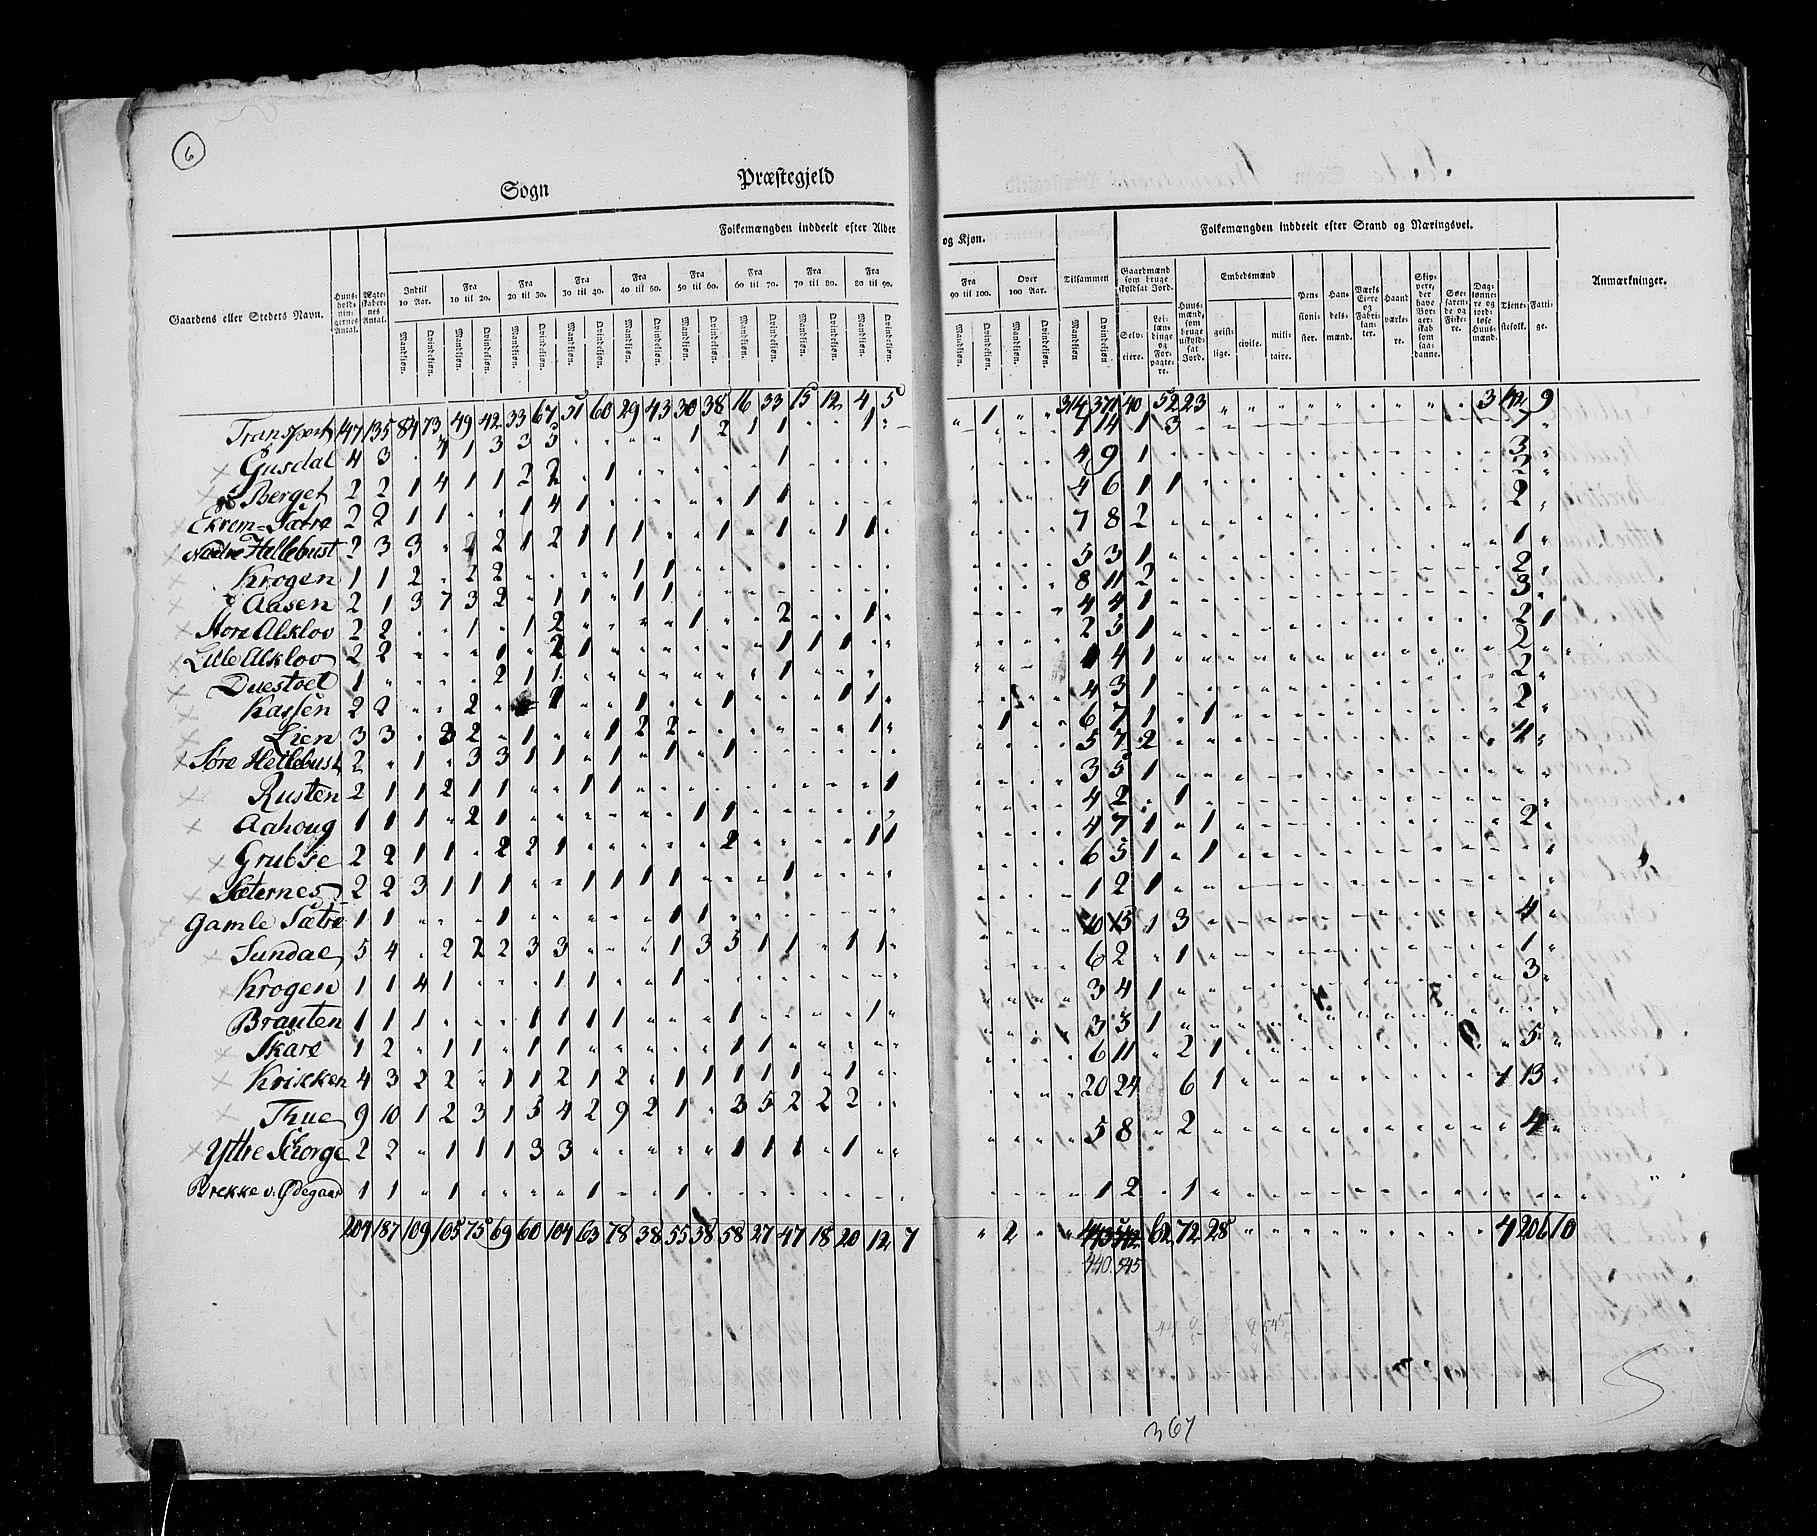 6
Sogn Præstegjeld
Folkemængden inddeelt efter Alder og Kjøn.
Folkemængden inddeelt efter Stand og Næringsvei.
Gaardens eller Stedets Navn.
Huus-holdnin-gernes Antal.
Ægte-skaber-nes Antal.
Indtil 10 Aar.
Fra 10 til 20.
Fra 20 til 30.
Fra 30 til 40.
Fra 40 til 50.
Fra 50 til 60.
Fra 60 til 70.
Fra 70 til 80.
Fra 80 til 90.
Fra 90 til 100.
Over 100 Aar.
Tilsammen
Gaardmænd som bruge skyldsat Jord.
Huus-mænd, som bruge uskyld-sat Jord.
Embedsmænd
Pen-sioni-ster.
Han-dels-mænd.
Værks Eiere og Fabri-kan-ter.
Haand-værke-re.
Skip-pere, der have Bor-ger-skab som saa-danne.
Søe-faren-de og Fiske-re.
Dag-lønne-re og jord-løse Huus-mænd.
Tiene-stefolk.
Fatti-ge.
Anmærkninger.
Mandkjøn. Qvindekjøn.
Selv-eiere.
Lei-læn-dinge og For-pagte-re.
geist-lige. civile. mili-taire.
Transport 147 135 84 73 49 42 33 67 51 60 29 43 30 38 16 33 15 12 4 5 " 1 " " 314 371 40 52 23 3 9
Gusdal 4 3 7 14 1 3 7
Berget 2 2 1 4 1 1 2 2 1 1 4 9 1 3
Sætre 2 2 1 1 1 4 1 1 1 4 6 1 1 2
Hellebust 2 3 3 2 2 1 2 1 1 1 1 1 1 1 7 8 2 2
Krogen 1 1 2 2 2 1 1 5 3 1 1
Aasen 2 1 3 7 3 2 1 1 1 1 8 11 2 2
Store Alsklov 2 2 1 1 2 1 2 1 4 4 1 3
Lille Alsklov 2 2 1 2 1 1 1 2 5 1 2 1
Duestoel 1 2 1 1 1 1 4 1 2
Kassen 2 2 2 1 1 1 1 1 4 3 1 2
Lien 3 3 3 2 1 1 2 2 1 1 6 7 1 1 2
Søre Hellebust 2 1 3 3 1 1 1 1 5 7 2 4
Rusten 2 1 1 2 1 1 1 1 1 3 5 1
Aahoug 1 1 1 2 1 1 1 4 2 1
Grubse 2 2 1 1 2 2 1 2 1 1 4 7 1 1 2
Sæternes 2 2 3 1 1 1 1 1 1 1 1 6 5 1 1
Gamle Sætre 1 1 1 1 1 1 2 1
Sundal 5 4 2 2 2 3 3 1 3 5 1 1 1 1 10 15 1 3 4
Krogen 1 1 4 1 1 1 1 6 2 1 1
Brauten 1 1 1 1 1 1 1 1 1 3 4 1 3
Skare 1 2 1 1 1 1 1 1 3 3 1
Krikken 4 3 2 2 1 1 2 1 2 1 1 1 1 1 1 6 11 2 1 5
Thue 9 10 1 2 3 1 5 4 2 9 2 1 3 5 2 2 2 20 24 6 1 1 13
Yttre Schorge 2 2 1 1 1 3 3 1 1 1 1 5 8 2 4
Brekke v. Ødegaard 1 1 1 1 1 1 2 1
204 187 109 105 75 69 60 104 63 78 38 55 38 58 27 47 18 20 12 7 " 2 62 72 28 4 206 10
440. 545
367